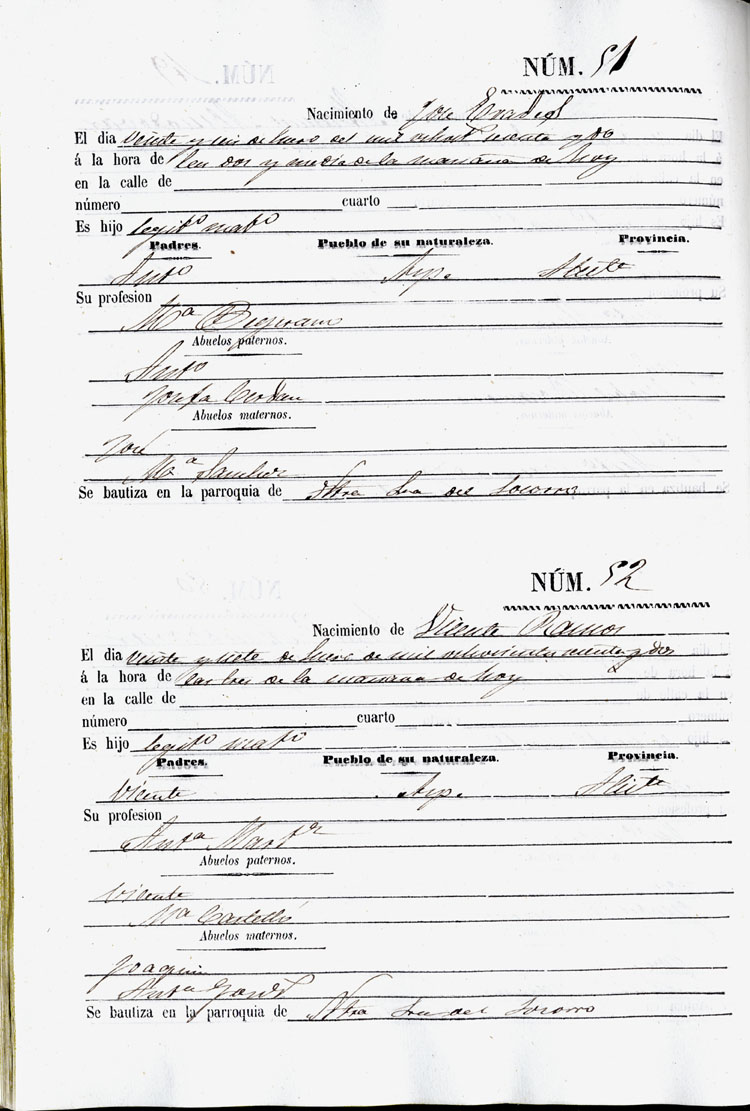 NÚM. 51
Nacimiento de Jose
El dia veinte y seis de Enero del mil ochost y dos
á la hora de las dos y media de la mañana de hoy
en la calle de
número cuarto
Es hijo legitº matº
Padres. Pueblo de su naturaleza. Provincia.
Antº Aspe Alicte
Su profesion
Mª
Abuelos paternos.
Antº
Josefa Cerdan
Abuelos maternos.
José
Mª Sanchez
Se bautiza en la parroquia de Ntra Sra del Socorro
NÚM. 52
Nacimiento de Vicente Ramos
El dia veinte y siete de Enero de mil ochocientos y dos
á la hora de las tres de la mañana de hoy
en la calle de
número cuarto
Es hijo legitº matº
Padres. Pueblo de su naturaleza. Provincia.
Vicente Aspe Alicte
Su profesion
Antª Martz
Abuelos paternos.
Vicente
Mª Castelló
Abuelos maternos.
Joaquin
Antª
Se bautiza en la parroquia de Ntra Sra del Socorro